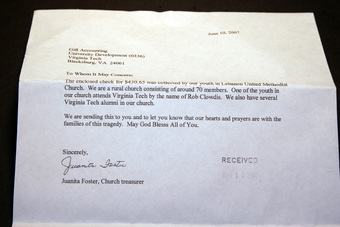 June 10, 2007
Gift Accounting
University Development (0336)
Virginia Tech
Blacksburg, VA 24061
To Whom It May Concern:
The enclosed check for $430.65 was collected by our youth in Lebanon United Methodist
Church. We are a rural church consisting of around 70 members. One of the youth in
our church attends Virginia Tech by the name of Rob Clowdis. We also have several
Virginia Tech alumni in our church.
We are sending this to you and to let you know that our hearts and prayers are with the
families of this tragedy. May God Blesss All of You.
Sincerely,
Juanita Foster
Juanita Foster, Church treasurer
RECEIVED